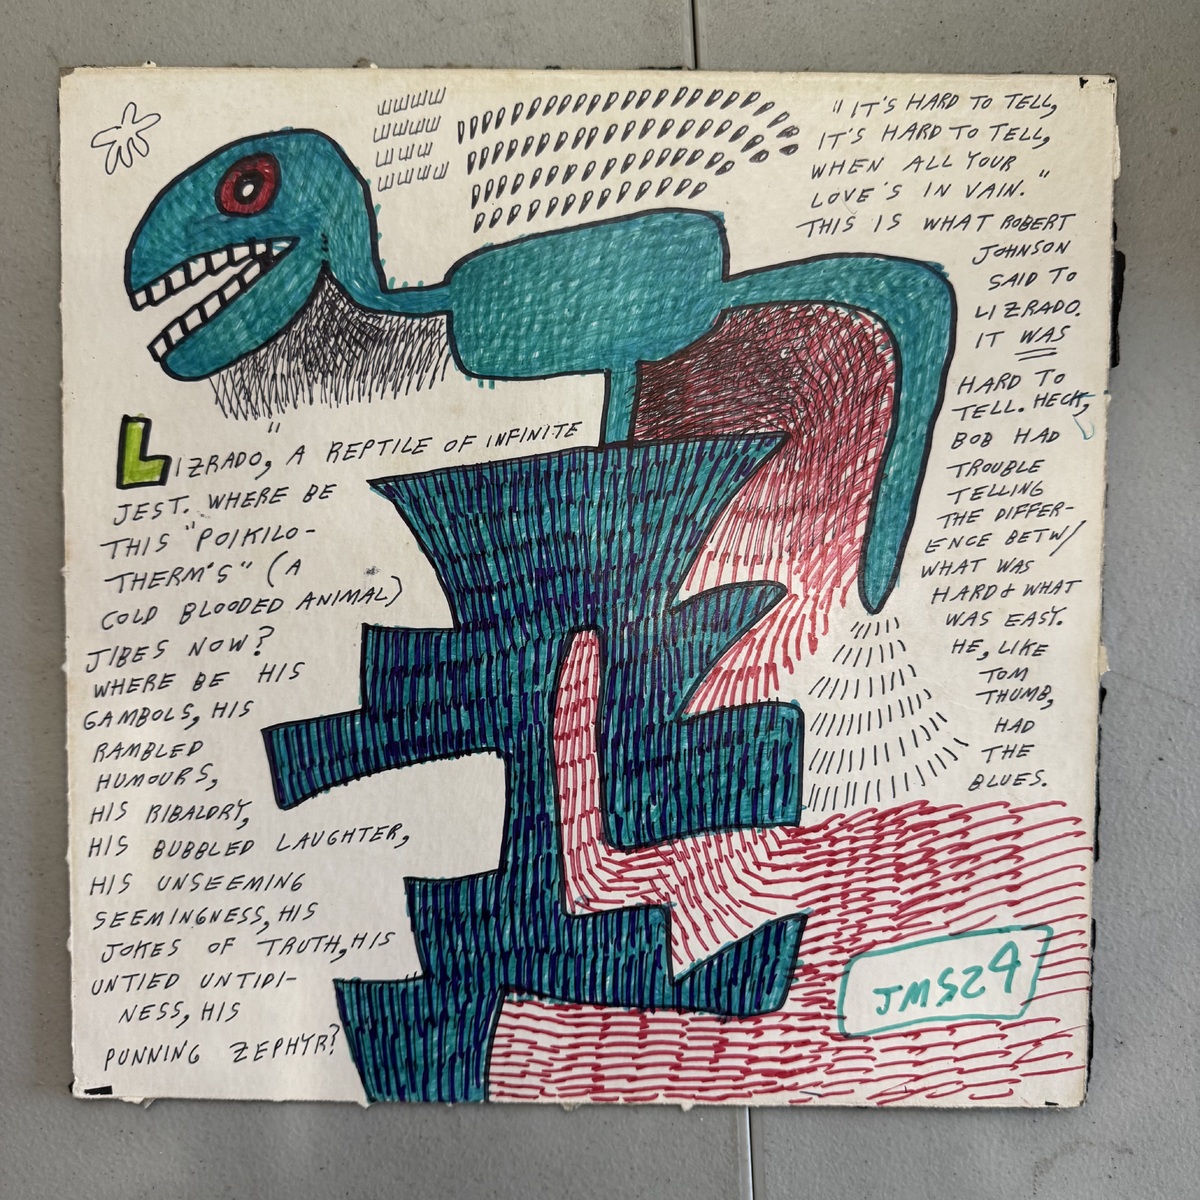 "LIZRADO, A REPTILE OF INFINITE
JEST. WHERE BE
THIS "POIKILO-
THERM'S" (A
COLD BLOODED ANIMAL)
JIBES NOW?
WHERE BE HIS
GAMBOLS, HIS
RAMBLED
HUMOURS,
HIS RIBALDRY,
HIS BUBBLED LAUGHTER,
HIS UNSEEMING
SEEMINGNESS, HIS
JOKES OF TRUTH, HIS
UNTIED UNTIDI-
NESS, HIS
PUNNING ZEPHYR?
"IT'S HARD TO TELL,
IT'S HARD TO TELL,
WHEN ALL YOUR
LOVE'S IN VAIN."
THIS IS WHAT ROBERT
JOHNSON
SAID TO
LIZRADO.
IT WAS
HARD TO
TELL. HECK,
BOB HAD
TROUBLE
TELLING
THE DIFFER-
ENCE BETW/
WHAT WAS
HARD & WHAT
WAS EASY.
HE, LIKE
TOM
THUMB,
HAD
THE
BLUES.
JMS24